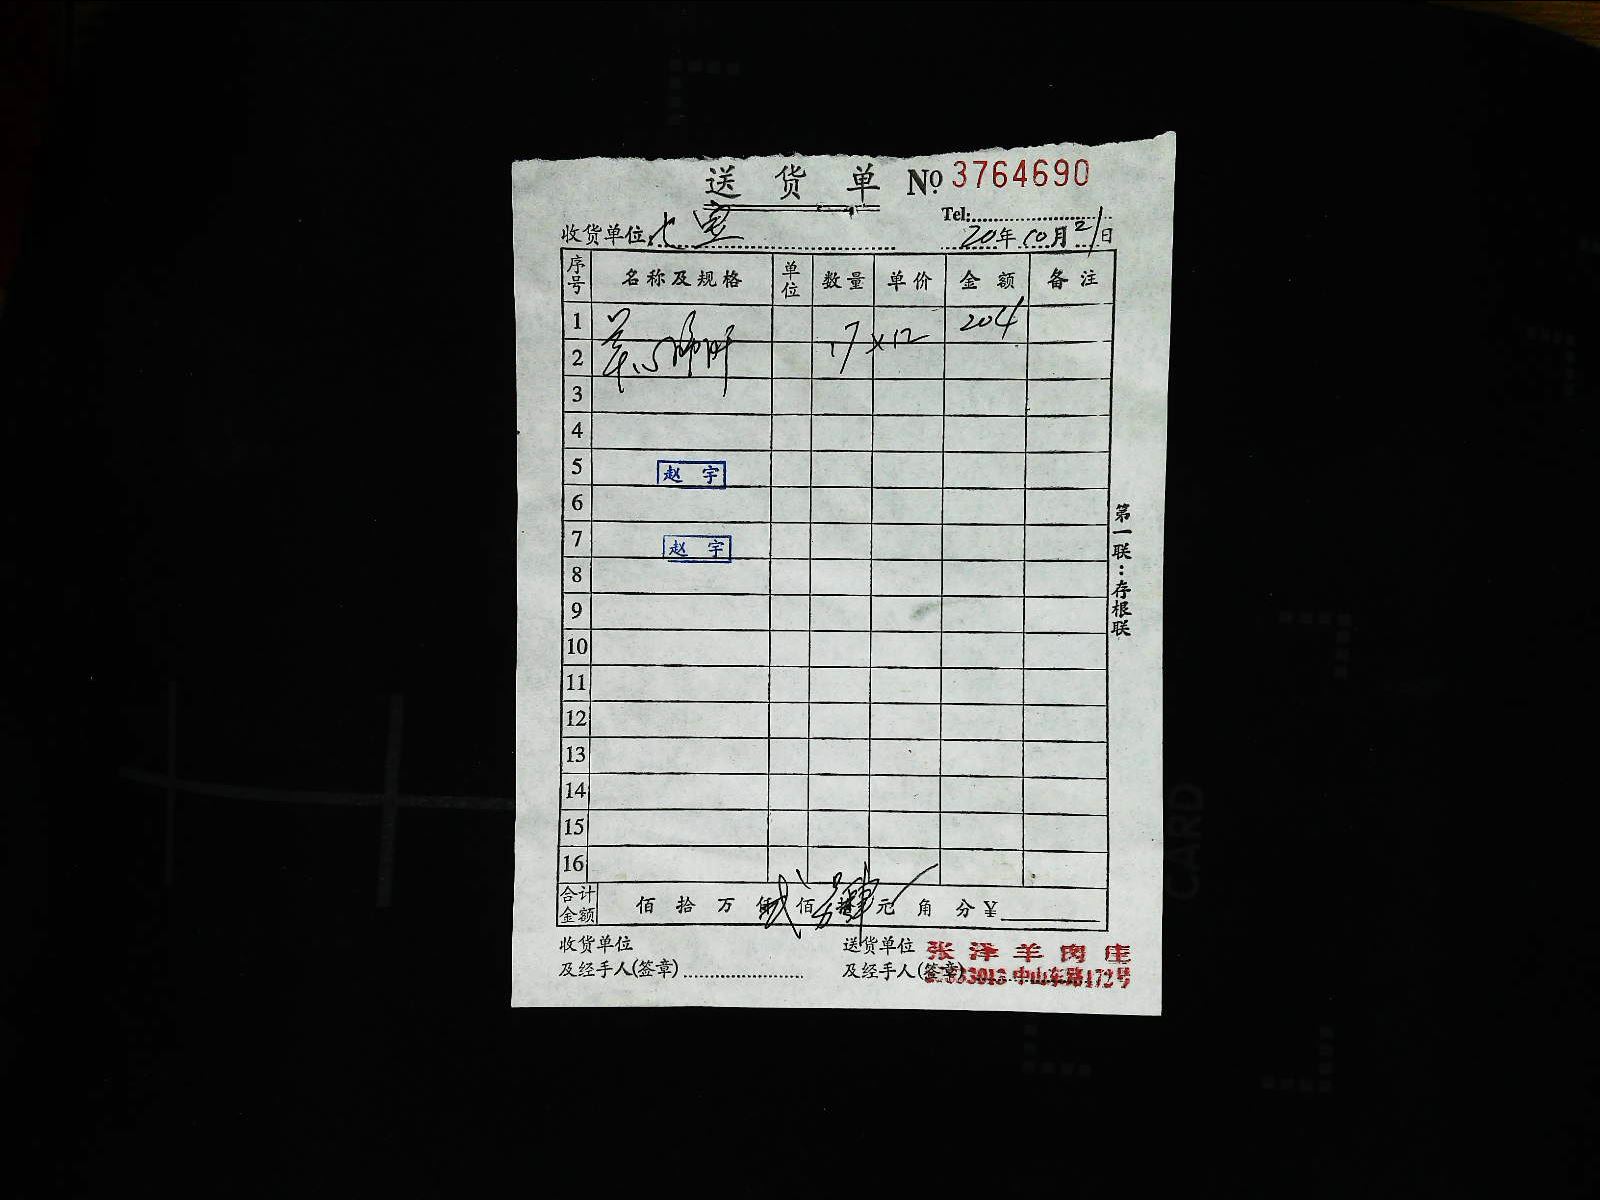 送 货 单 № 3764690
Tel:
收货单位 七宝 20年10月21日
序号 名称及规格 单位 数量 单价 金额 备注
1 204
2 17 x12
3
4
5 赵 宇
6
7 赵 宇
8
9
10
11
12
13
14
15
16
合计金额 佰 拾 万 仟 佰 拾 元 角 分 ¥
贰 肆
收货单位 送货单位 张泽羊肉庄
及经手人(签章) 及经手人(签章) 中山东路172号
第一联：存根联
CARD